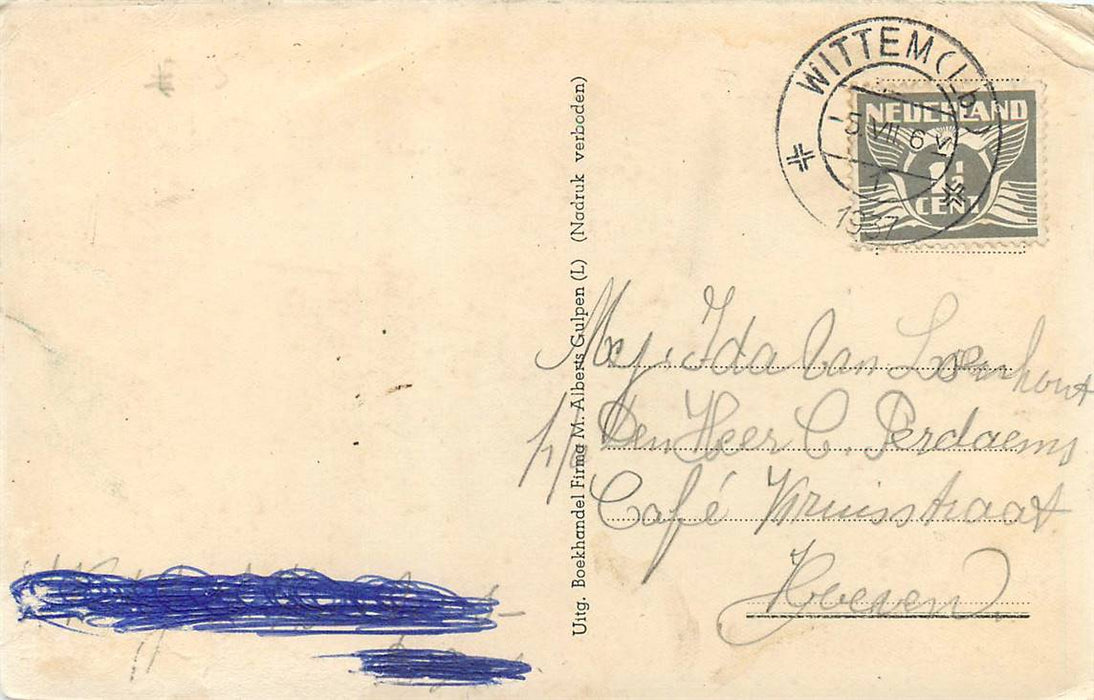 WITTEM (Lb)
5 VII 6 V
1
1937
NEDERLAND
1½
CENT
Uitg. Boekhandel Firma M. Alberts Gulpen (L) (Nadruk verboden)
Mej. Ida Van Loenhout
h/d Den Heer C. Perdaems
Café Kruisstraat
Hoeven